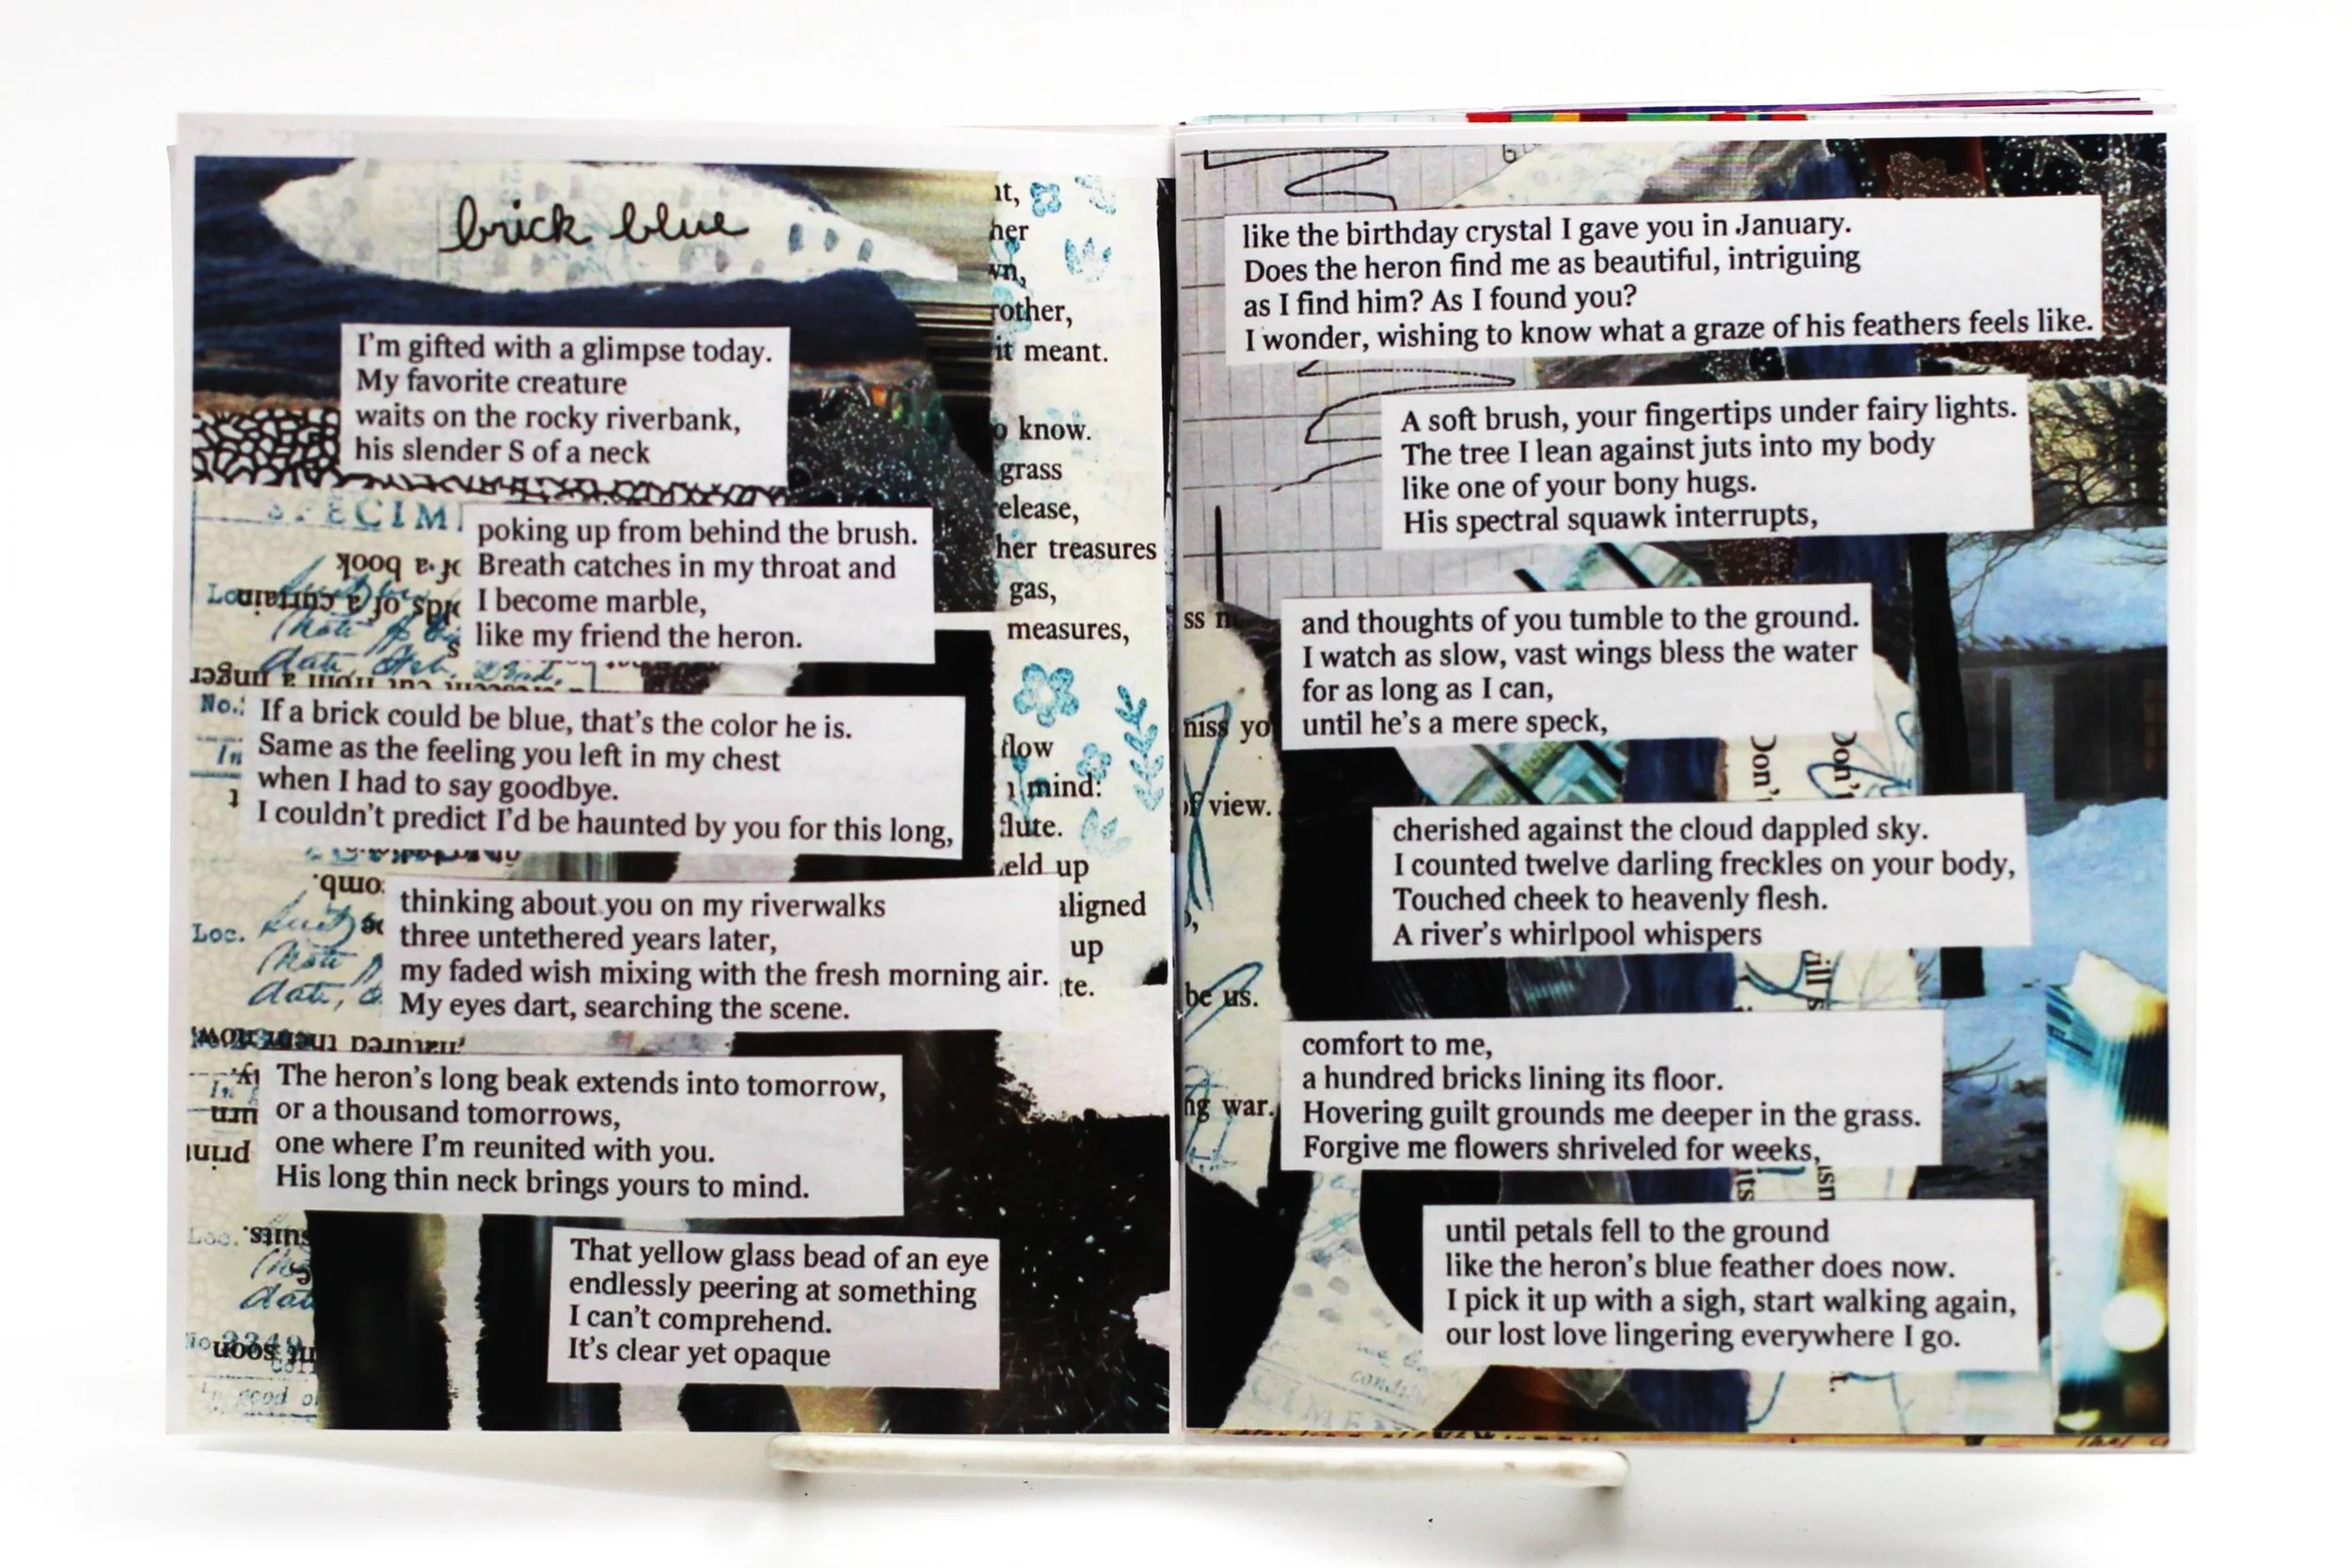 brick blue
I'm gifted with a glimpse today.
My favorite creature
waits on the rocky riverbank,
his slender S of a neck
poking up from behind the brush.
Breath catches in my throat and
I become marble,
like my friend the heron.
If a brick could be blue, that's the color he is.
Same as the feeling you left in my chest
when I had to say goodbye.
I couldn't predict I'd be haunted by you for this long,
thinking about you on my riverwalks
three untethered years later,
my faded wish mixing with the fresh morning air.
My eyes dart, searching the scene.
The heron's long beak extends into tomorrow,
or a thousand tomorrows,
one where I'm reunited with you.
His long thin neck brings yours to mind.
That yellow glass bead of an eye
endlessly peering at something
I can't comprehend.
It's clear yet opaque
it meant.
know.
grass
her treasures
gas,
measures,
flow
mind:
flute.
up
aligned
up
SPECIM
or a book
of a curtain
No.
Loc.
date,
Loc.
soon
like the birthday crystal I gave you in January.
Does the heron find me as beautiful, intriguing
as I find him? As I found you?
I wonder, wishing to know what a graze of his feathers feels like.
A soft brush, your fingertips under fairy lights.
The tree I lean against juts into my body
like one of your bony hugs.
His spectral squawk interrupts,
and thoughts of you tumble to the ground.
I watch as slow, vast wings bless the water
for as long as I can,
until he's a mere speck,
cherished against the cloud dappled sky.
I counted twelve darling freckles on your body,
Touched cheek to heavenly flesh.
A river's whirlpool whispers
comfort to me,
a hundred bricks lining its floor.
Hovering guilt grounds me deeper in the grass.
Forgive me flowers shriveled for weeks,
until petals fell to the ground
like the heron's blue feather does now.
I pick it up with a sigh, start walking again,
our lost love lingering everywhere I go.
of view.
be us.
war.
Don't
Don't